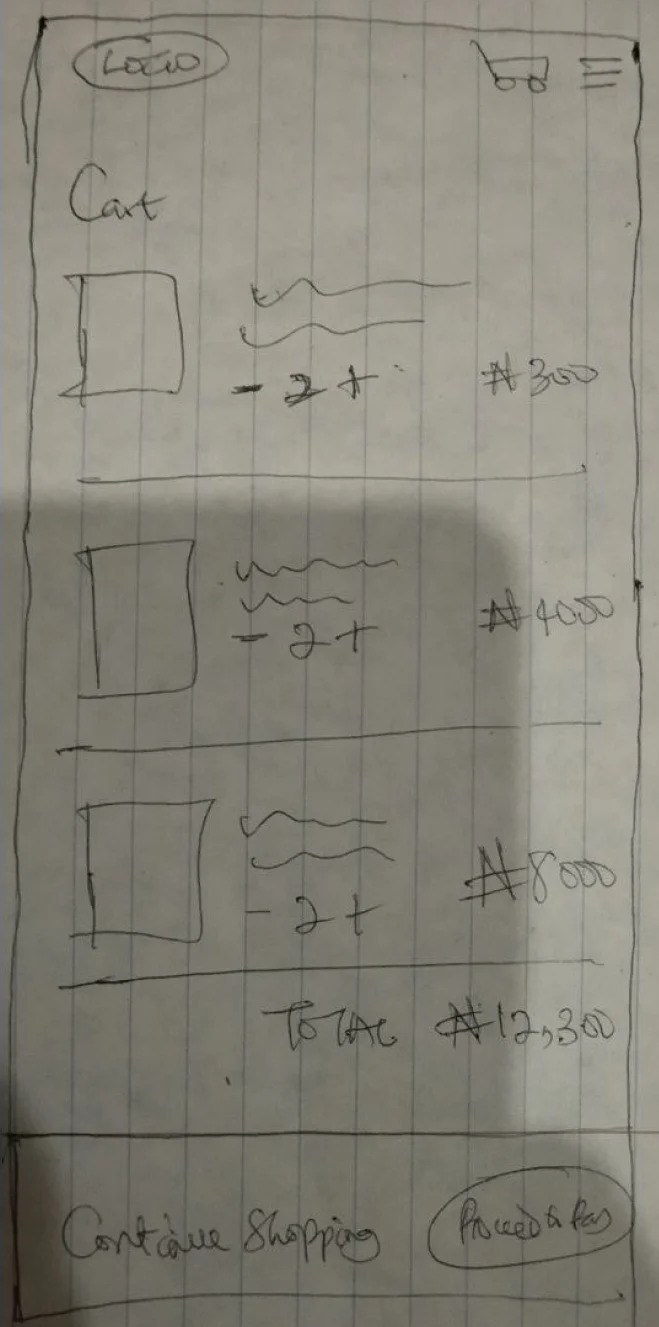 LOGO
Cart
- 2 + ₦300
- 2 + ₦4000
- 2 + ₦8000
TOTAL ₦12,300
Continue Shopping Proceed to Pay